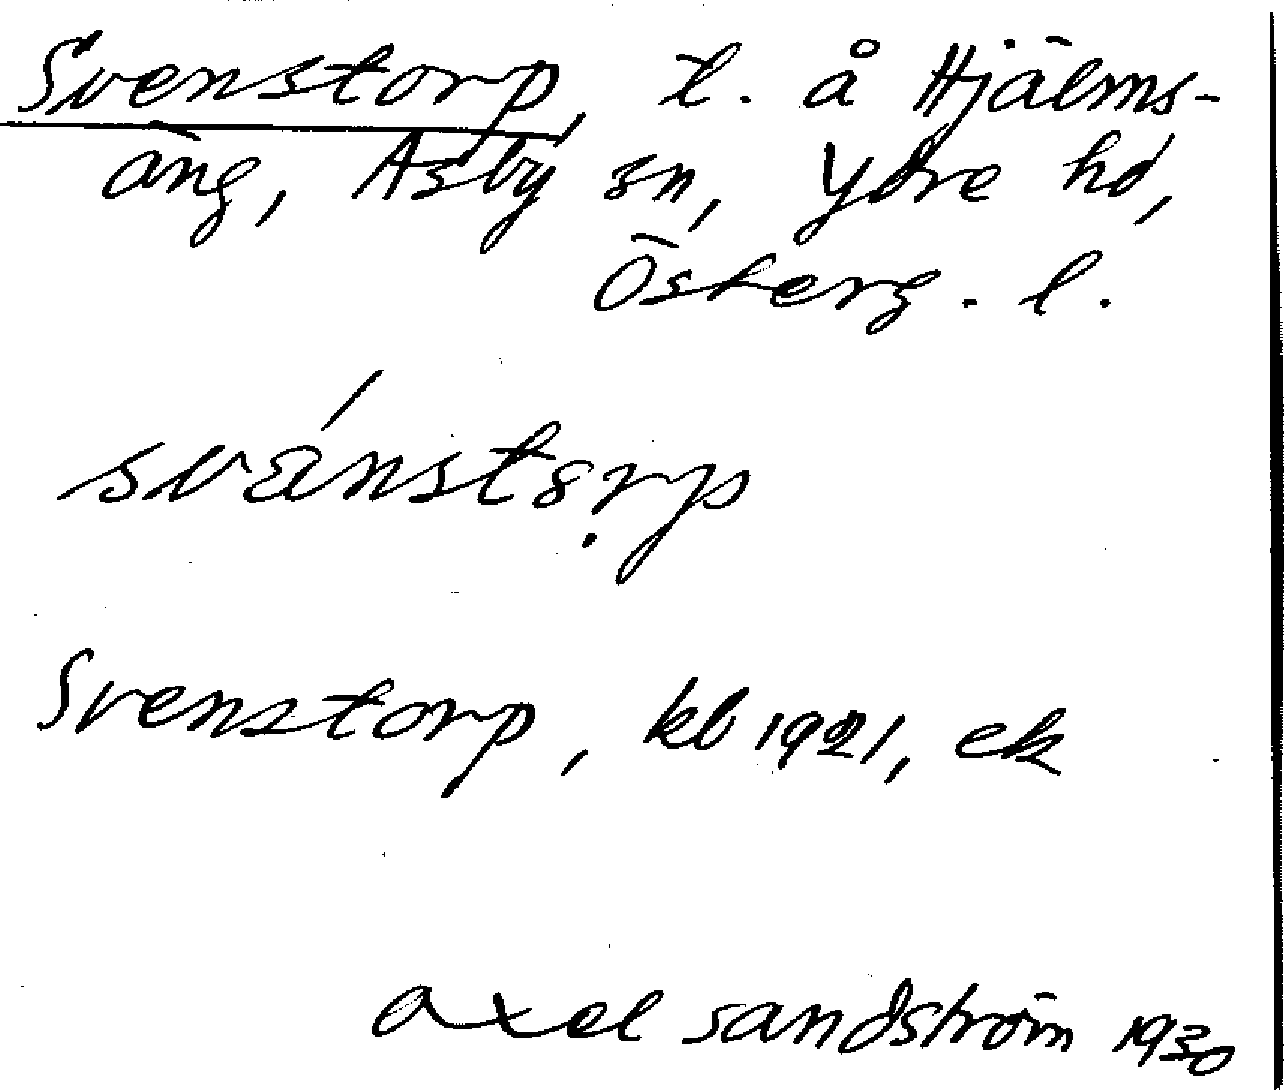 Svenstorp, t. å Hjälms-
äng, Asby sn, Ydre hd,
Österg. l.
svänstørp
Svenstorp, kb 1921, ek
axel sandström 1930